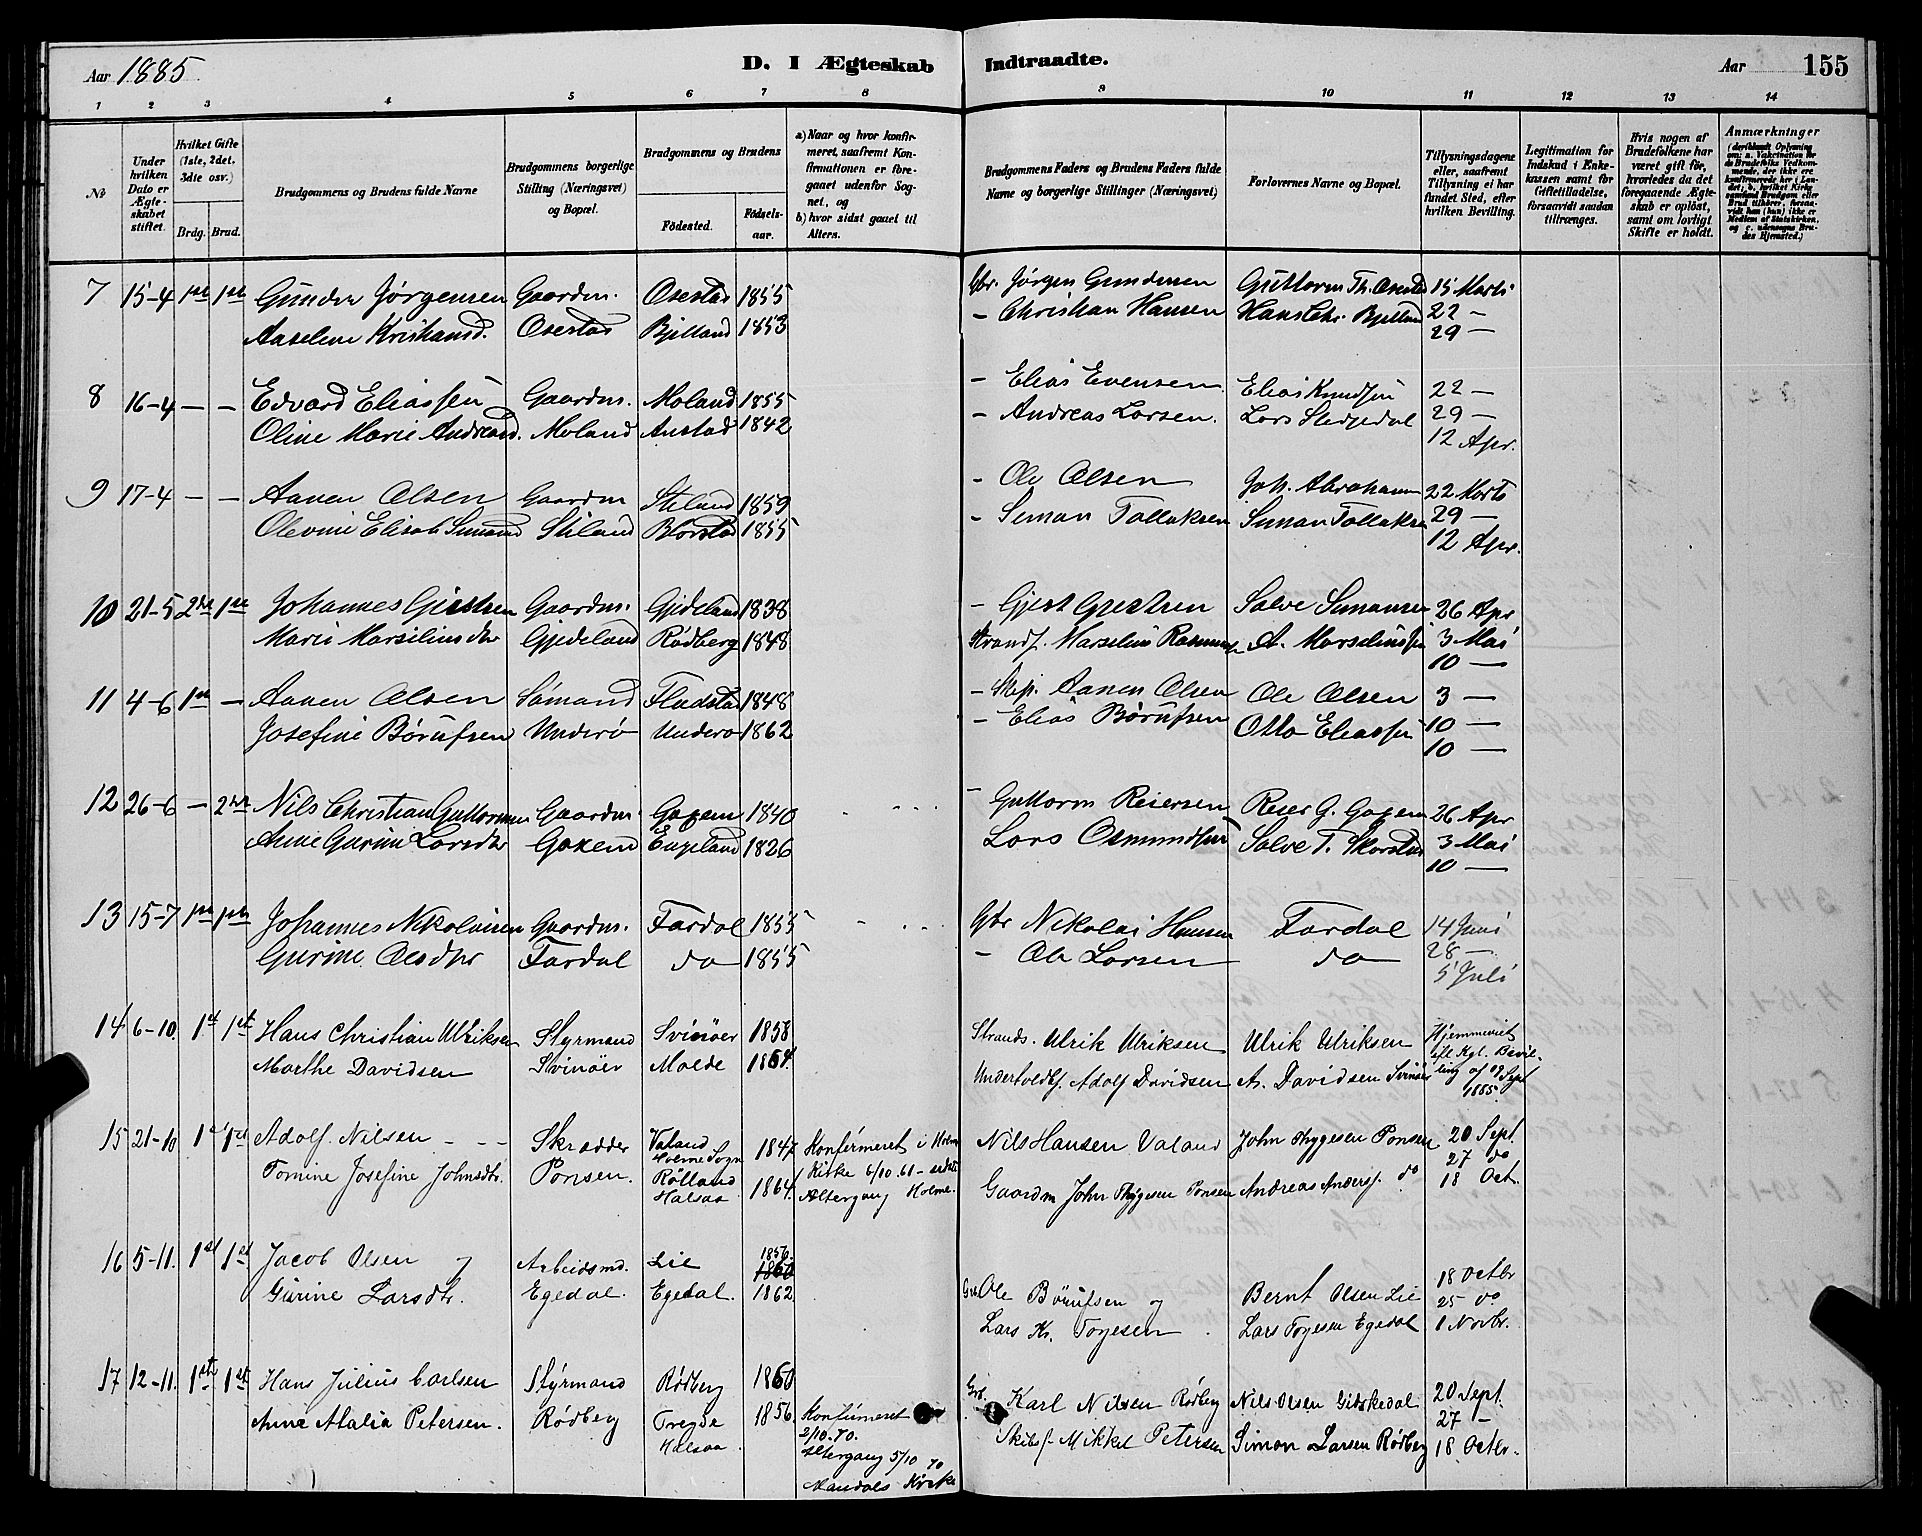 Aar 1885. D. I Ægteskab Indtraadte. Aar 155
1 2 3 4 5 6 7 8 9 10 11 12 13 14
№
Under hvilken Dato er Ægteskabet stiftet.
Hvilket Gifte (1ste, 2det, 3die osv.)
Brdg. Brud.
Brudgommens og Brudens fulde Navne
Brudgommens borgerlige Stilling (Næringsvei) og Bopæl.
Brudgommens og Brudens
Fødested. Fødselsaar.
a) Naar og hvor konfirmeret, saafremt Konfirmationen er foregaaet udenfor Sognet, og
b) hvor sidst gaaet til Alters.
Brudgommens Faders og Brudens Faders fulde Navne og borgerlige Stillinger (Næringsvei)
Forlovernes Navne og Bopæl.
Tillysningsdagene eller, saafremt Tillysning ei har fundet Sted, efter hvilken Bevilling.
Legitimation for Indskud i Enkekassen samt for Giftetilladelse, forsaavidt saadan tiltrænges.
Hvis nogen af Brudefolkene har været gift før, hvorledes da det foregaaende Ægteskab er opløst, samt om lovligt Skifte er holdt.
Anmærkninger
7 15-4 1ste 1ste Gunder Jørgensen Gaardm. Osestad 1855 Gbr. Jørgen Gundersen Guttorm Th. Osestad 15 Marts
Aaselene Kristiansd. Osestad Bjelland 1853 - Christian Hansen Hans Chr. Bjelland 22 -
29 -
8 16-4 - - Edvard Eliassen Gaardm. Moland 1855 - Elias Evensen Elias Knudsen 22 -
Oline Marie Andreasd. Moland Anstad 1842 - Andreas Larsen. Lars Stedjedal 29 -
12 Apr.
9 17-4 - - Aanen Olsen Gaardm Stiland 1859 - Ole Olsen Joh. Abrahams 22 Marts
Olevine Elisab Simonsd Stiland Blørstad 1855 - Simon Tallaksen Simon Tallaksen 29 -
12 Apr.
10 21-5 2den 1ste Johannes Giertsen Gaardm. Gjideland 1838 - Gjert Giertsen Salve Simonsen 26 Apr
Marie Marseliusdtr Gjideland Rødberg 1848 Strands. Marselius Rasmussen A. Marseliussen 3 Mai
10 -
11 4-6 1ste - Aanen Olsen Sømand Fladstad 1848 - Skip. Aanen Olsen Ole Olsen 3 -
Josefine Børufsen Underø Underø 1862 - Elias Børufsen Otto Eliassen 10 -
10 -
12 26-6 - 2den Nils Christian Guttormsen Gaardm. Gaxem 1840 - Guttorm Reiersen Reier G. Gaxem 26 Apr
Anne Gurine Larsdtr Gaxem Eugeland 1826 Lars Osmundsen Salve T. Skorstad 3 Mai
10 -
13 15-7 1ste 1ste Johannes Nikolaisen Gaardm. Fardal 1855 Gbr Nikolai Hansen Fardal 14 Juni
Gurine Olsdtr Fardal do 1855 - Ole Larsen do 28 -
5 Juli
14 6-10. 1st 1ste Hans Christian Ulriksen Styrmand Svinøer 1858 Strands. Ulrik Ulriksen Ulrik Ulriksen Hjemmeviet
Marthe Davidsen Svinøer Molde 1864. Undertoldb. Adolf Davidsen A. Davidsen Svinøer
efl. Kgl. Bevilling af 09 Sept 1885.
15 21-10 1ste 1ste Adolf Nilsen - - - Skrædder Valand Holme Sogn 1847. Konfirmeret i Holme Nils Hansen Valand John Thygesen Ponsen 20 Sept.
Kirke 6/10.61 - sidste 27 do
Tomine Josefine Johnsdtr. Ponsen. Rølland Halsaa 1864. Altergang Holme. Gaardm John Thygesen Ponsen Andreas Anders. do 18 Oct.
16 5-11. 1st 1st Jacob Olsen og Arbeidsmd. Lie 1856. 1860 Grb Ole Børufsen og Bernt Olsen Lie 18 Octbr
Gurine Larsdtr. Egedal. Egedal. 1862. Lars Kr. Togesen Lars Togesen Egedal 25 do
1 Novbr.
17 12-11. 1ste 1ste Hans Julius Carlsen Styrmand Rødberg 1860 Grb. Karl Nilsen Rødberg Nils Olsen Gidskedal 20 Sept.
Anne Atalia Petersen. Rødberg Tregde Halsaa 1856. Konfirmeret 27 -
2/10.70. Skibsf. Mikkel Petersen Simon Larsen Rødberg 18 Octbr.
Altergang 5/10 70
Mandals Kirke